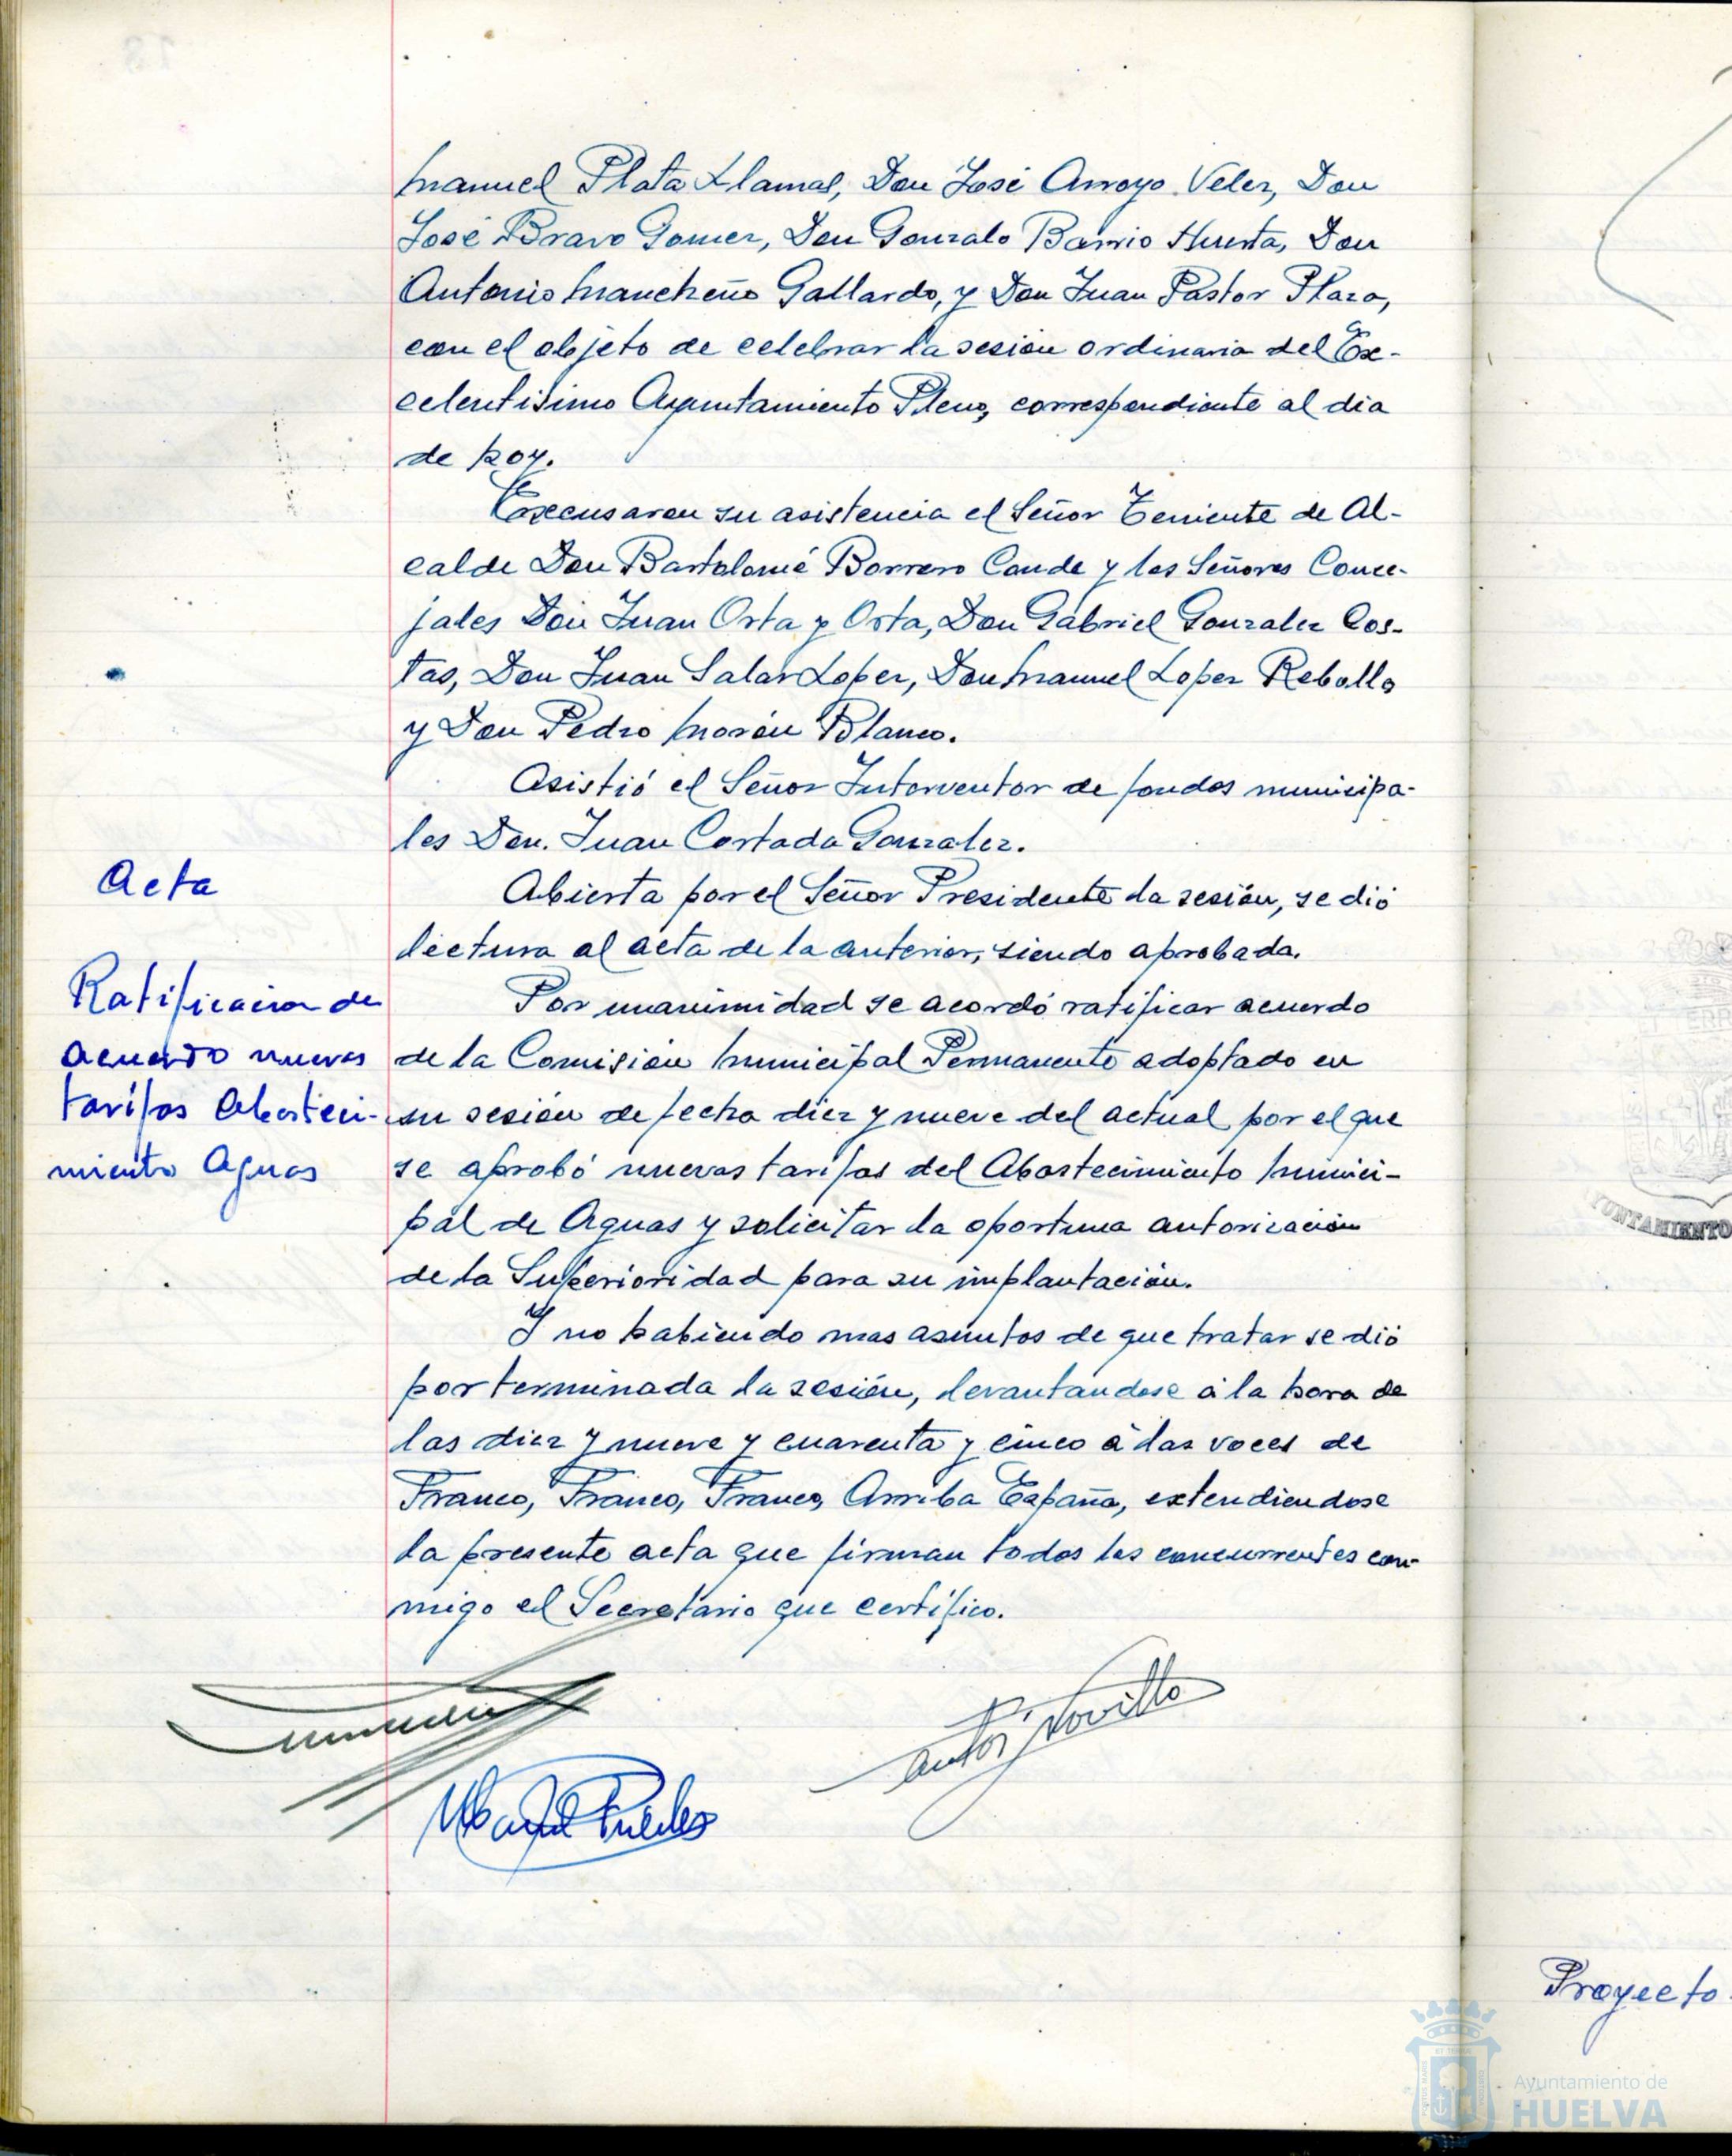 Manuel Plata Llamas, Don José Arroyo Velez, Don
José Bravo Gomez, Don Gonzalo Barrio Huerta, Don
Antonio Mancheño Gallardo, y Don Juan Pastor Plaza,
con el objeto de celebrar la sesion ordinaria del Ex-
celentisimo Ayuntamiento Pleno, correspondiente al dia
de hoy.
Excusaron su asistencia el Señor Teniente de Al-
calde Don Bartolomé Borrero Conde y los Señores Conce-
jales Don Juan Orta y Orta, Don Gabriel Gonzalez Cos-
tas, Don Juan Salas Lopez, Don Manuel Lopez Rebollo
y Don Pedro Morón Blanco.
Asistió el Señor Interventor de fondos municipa-
les Don. Juan Cortada Gonzalez.
Acta
Abierta por el Señor Presidente la sesión, se dió
lectura al acta de la anterior, siendo aprobada.
Ratificacion de
acuerdo nuevas
tarifas Abasteci-
miento Aguas
Por unanimidad se acordó ratificar acuerdo
de la Comision Municipal Permanente adoptado en
su sesion de fecha diez y nueve del actual por el que
se aprobó nuevas tarifas del Abastecimiento Munici-
pal de Aguas y solicitar la oportuna autorización
de la Superioridad para su implantación.
Y no habiendo mas asuntos de que tratar se dió
por terminada la sesión, levantandose á la hora de
las diez y nueve y cuarenta y cinco á las voces de
Franco, Franco, Franco, Arriba España, extendiendose
la presente acta que firman todos los concurrentes con-
migo el Secretario que certifico.
Proyecto
Ayuntamiento de
HUELVA